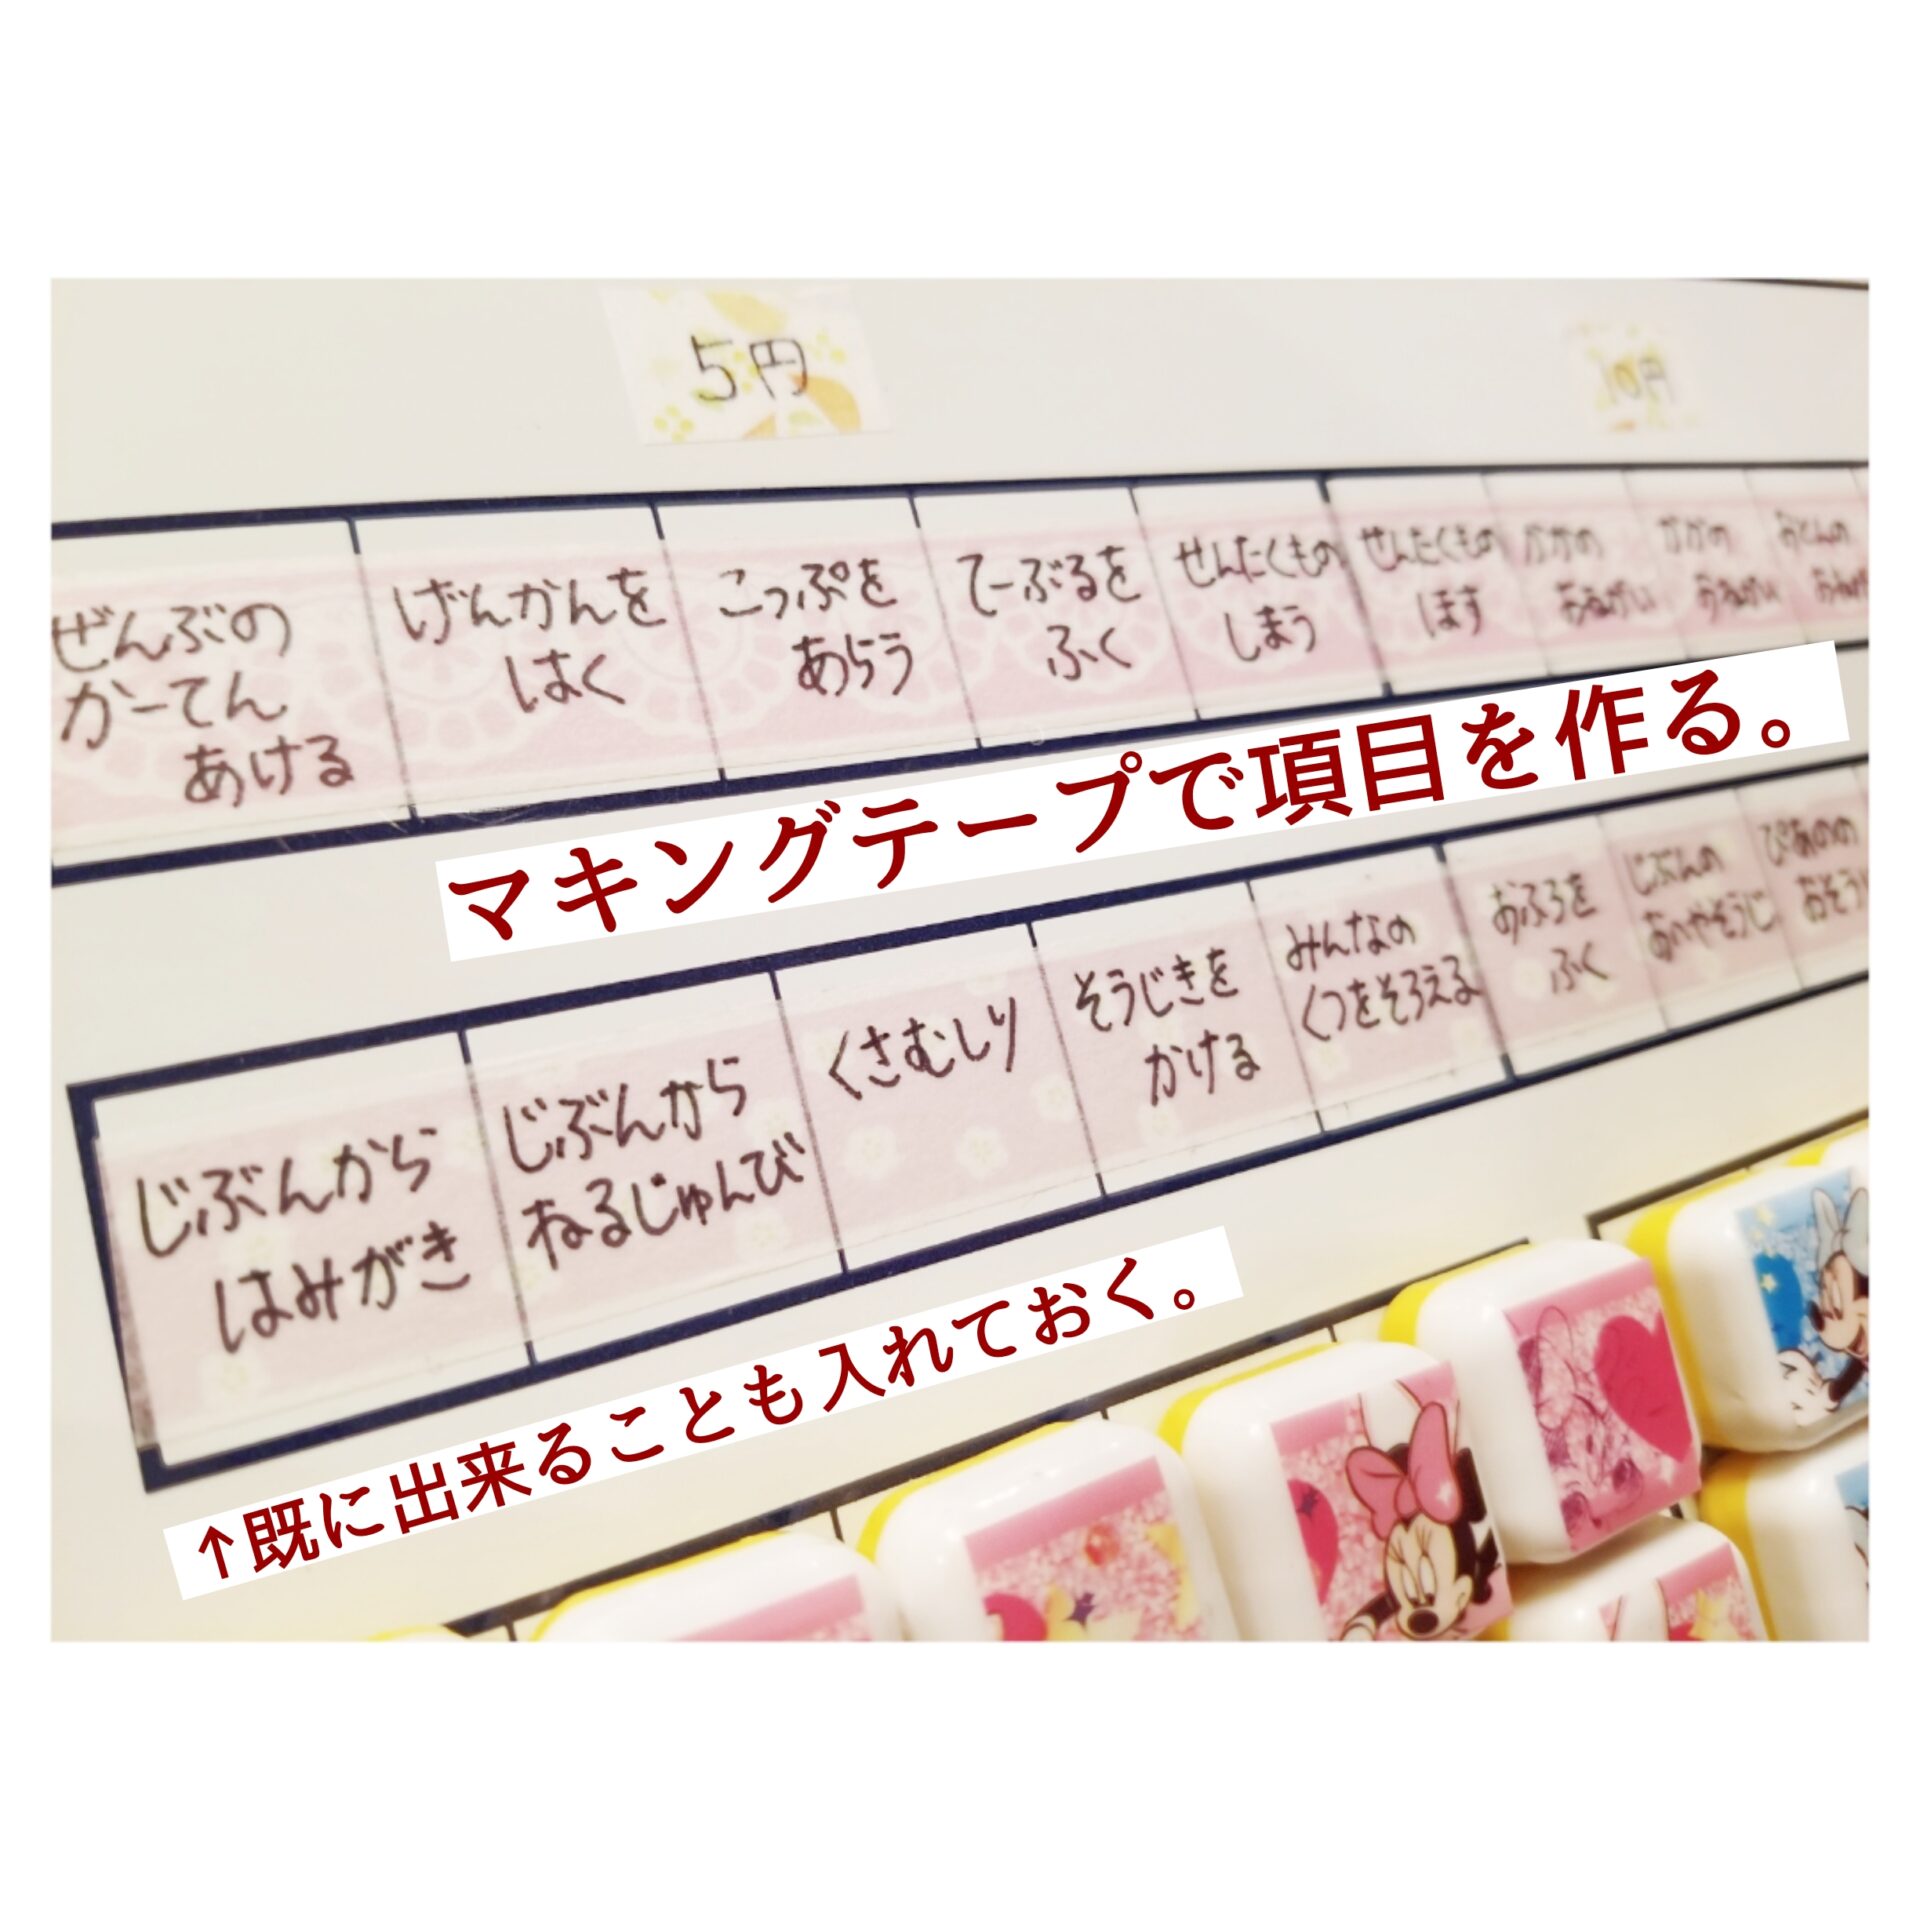 5円
10円
ぜんぶの
かーてん
あける
げんかんを
はく
こっぷを
あらう
てーぶるを
ふく
せんたくもの
しまう
せんたくもの
ほす
かかの
おねがい
かかの
おねがい
おとんの
マキングテープで項目を作る。
じぶんから
はみがき
じぶんから
ねるじゅんび
くさむしり
そうじきを
かける
みんなの
くつをそろえる
おふろを
ふく
じぶんの
おへやそうじ
ぴあのの
↑既に出来ることも入れておく。